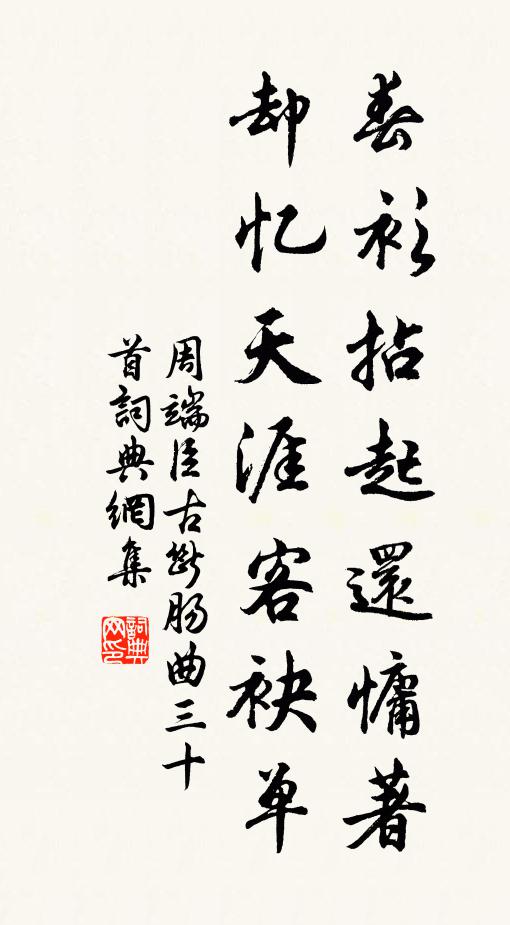 春衫拈起還慵著
却忆天涯客袂单
周端臣古断肠曲三十
首詞典網集
詞典
网印